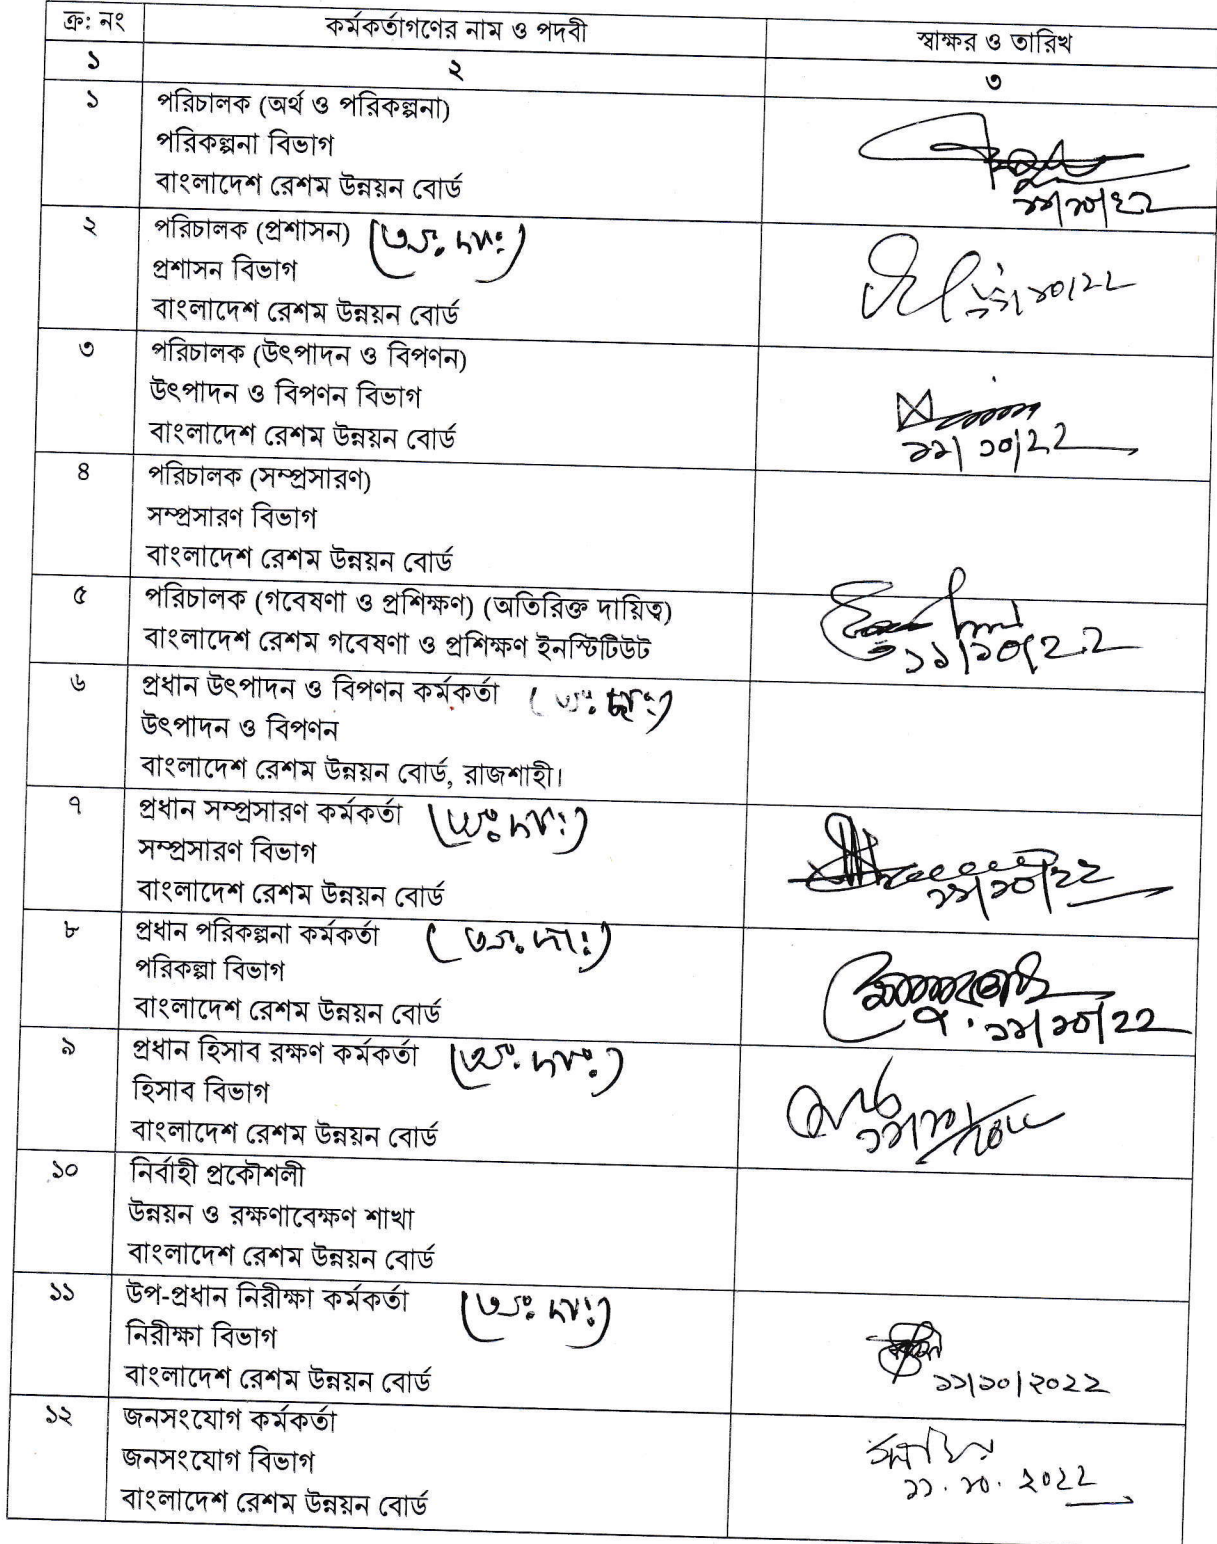 ক্র: নং কর্মকর্তাগণের নাম ও পদবী স্বাক্ষর ও তারিখ
১ ২ ৩
১ পরিচালক (অর্থ ও পরিকল্পনা)
পরিকল্পনা বিভাগ
বাংলাদেশ রেশম উন্নয়ন বোর্ড
১১/১০/২২
২ পরিচালক (প্রশাসন) (অঃ দাঃ)
প্রশাসন বিভাগ
বাংলাদেশ রেশম উন্নয়ন বোর্ড
১১/১০/২২
৩ পরিচালক (উৎপাদন ও বিপণন)
উৎপাদন ও বিপণন বিভাগ
বাংলাদেশ রেশম উন্নয়ন বোর্ড
১১/১০/২২
৪ পরিচালক (সম্প্রসারণ)
সম্প্রসারণ বিভাগ
বাংলাদেশ রেশম উন্নয়ন বোর্ড
৫ পরিচালক (গবেষণা ও প্রশিক্ষণ) (অতিরিক্ত দায়িত্ব)
বাংলাদেশ রেশম গবেষণা ও প্রশিক্ষণ ইনস্টিটিউট
১১/১০/২২
৬ প্রধান উৎপাদন ও বিপণন কর্মকর্তা (অঃ দাঃ)
উৎপাদন ও বিপণন
বাংলাদেশ রেশম উন্নয়ন বোর্ড, রাজশাহী।
৭ প্রধান সম্প্রসারণ কর্মকর্তা (অঃ দাঃ)
সম্প্রসারণ বিভাগ
বাংলাদেশ রেশম উন্নয়ন বোর্ড
১১/১০/২২
৮ প্রধান পরিকল্পনা কর্মকর্তা (অঃ দাঃ)
পরিকল্পা বিভাগ
বাংলাদেশ রেশম উন্নয়ন বোর্ড
১১/১০/২২
৯ প্রধান হিসাব রক্ষণ কর্মকর্তা (অঃ দাঃ)
হিসাব বিভাগ
বাংলাদেশ রেশম উন্নয়ন বোর্ড
১০ নির্বাহী প্রকৌশলী
উন্নয়ন ও রক্ষণাবেক্ষণ শাখা
বাংলাদেশ রেশম উন্নয়ন বোর্ড
১১ উপ-প্রধান নিরীক্ষা কর্মকর্তা (অঃ দাঃ)
নিরীক্ষা বিভাগ
বাংলাদেশ রেশম উন্নয়ন বোর্ড
১১/১০/২০২২
১২ জনসংযোগ কর্মকর্তা
জনসংযোগ বিভাগ
বাংলাদেশ রেশম উন্নয়ন বোর্ড
১১.১০.২০২২